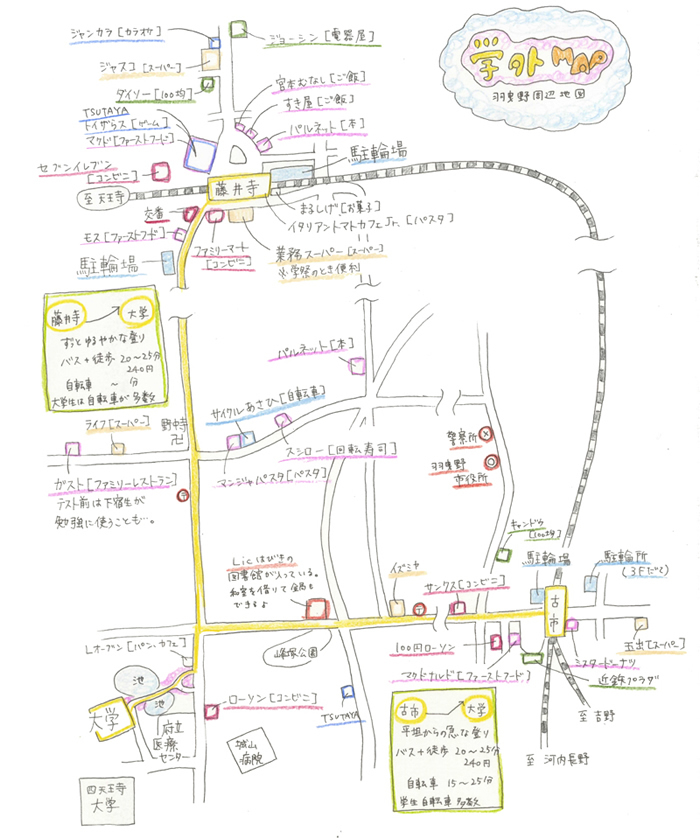 学外MAP
羽曳野周辺地図
ジャンカラ[カラオケ]
ジョーシン[電器屋]
ジャスコ[スーパー]
ダイソー[100均]
宮本むなし[ご飯]
すき屋[ご飯]
パルネット[本]
TSUTAYA
トイザらス[ゲーム]
マクド[ファーストフード]
駐輪場
セブンイレブン
[コンビニ]
至天王寺
藤井寺
まるしげ[お菓子]
イタリアントマトカフェJr.[パスタ]
交番
モス[ファーストフード]
ファミリーマート
[コンビニ]
業務スーパー[スーパー]
※学祭のとき便利
駐輪場
藤井寺
大学
ずっとゆるやかな登り
バス+徒歩 20~25分
240円
自転車 ~ 分
大学生は自転車が多数
パルネット[本]
サイクルあさひ[自転車]
ライフ[スーパー]
野中寺
卍
スシロー[回転寿司]
マンジャパスタ[パスタ]
ガスト[ファミリーレストラン]
テスト前は下宿生が
勉強に使うことも…。
〒
警察所
羽曳野
市役所
キャンドゥ
[100均]
Licはびきの
図書館が入っている。
和室を借りて
できるよ
イズミヤ
〒
サンクス[コンビニ]
駐輪場
駐輪所
古市
100円ローソン
マクドナルド[ファーストフード]
ミスタードーナツ
近鉄プラザ
玉出[スーパー]
峰塚公園
Lオーブン[パン、カフェ]
池
池
大学
府立
医療
センター
ローソン[コンビニ]
TSUTAYA
城山
病院
四天王寺
大学
古市
大学
平坦からの急な登り
バス+徒歩 20~25分
240円
自転車 15~25分
学生 自転車 多数
至吉野
至河内長野